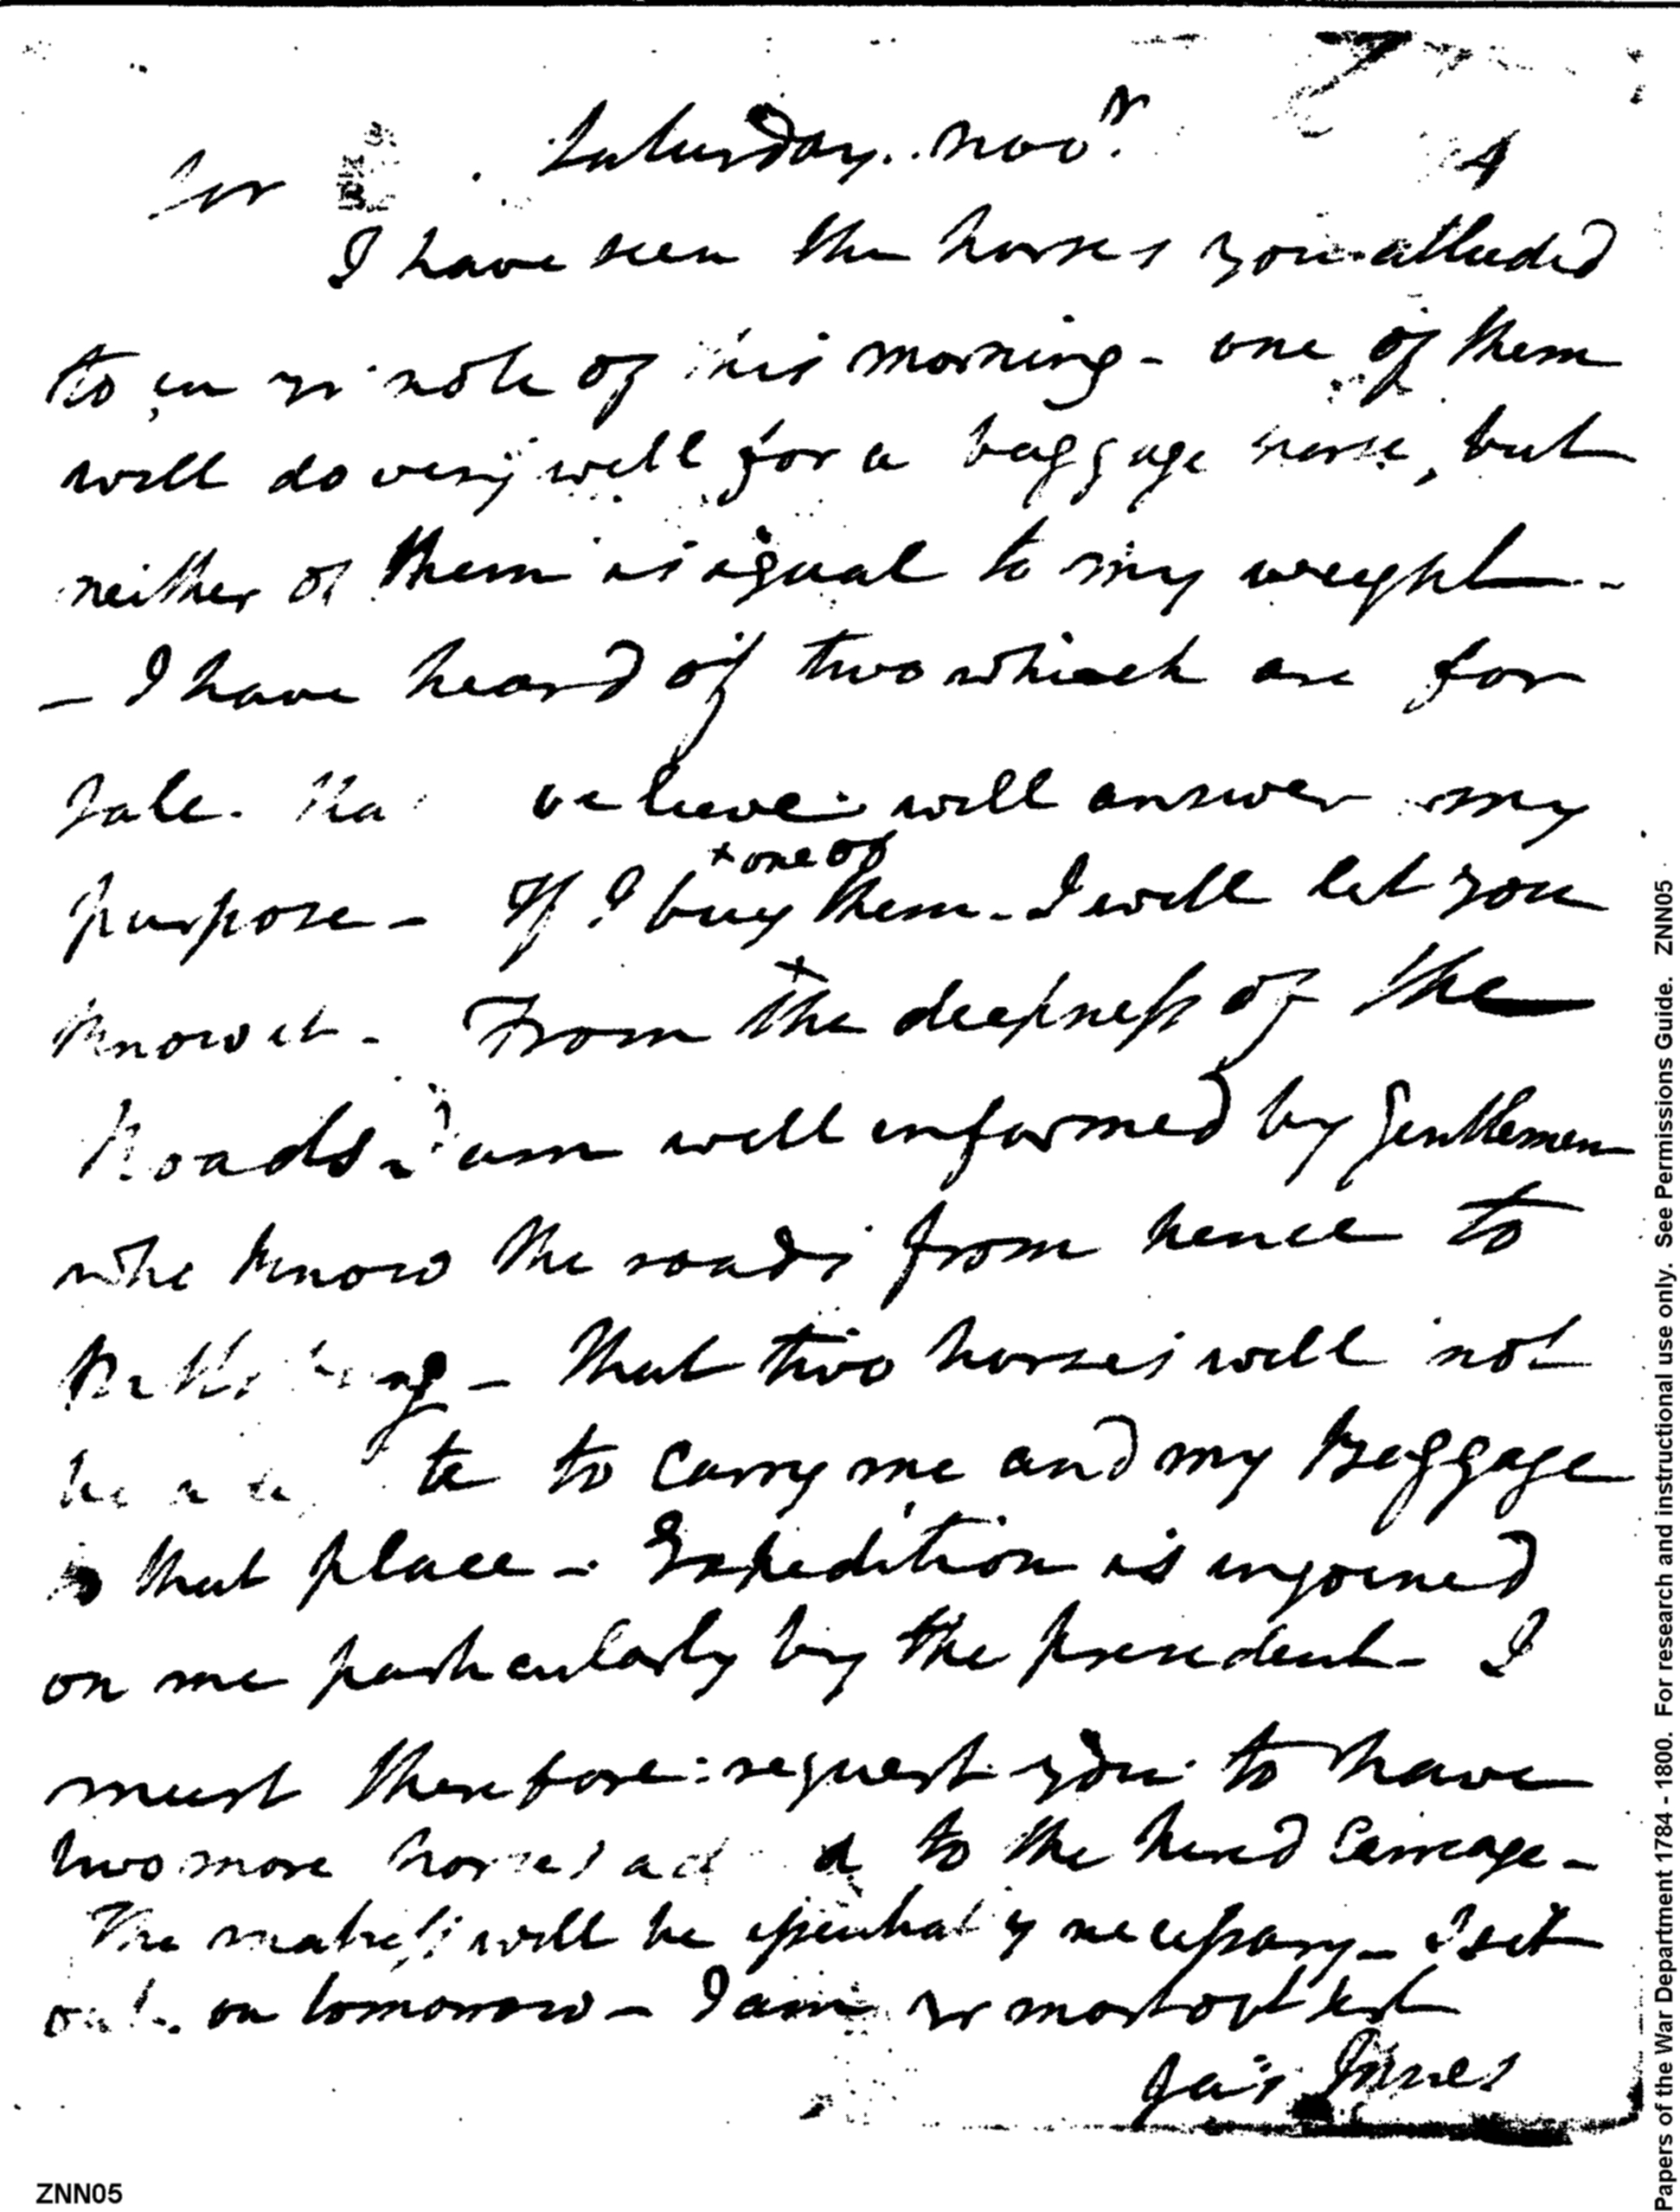 Saturday. Novr.
Sir
I have seen the horses you alluded
to in yr note of this morning - one of them
will do very well for a baggage horse, but
neither of them is equal to my weight -
- I have heard of two which are for
sale. believe will answer my
+ one of
purpose - If I buy them - I will let you
know it - From the deepness of the
Roads I am well informed by Gentlemen
who know the roads from hence to
- that two horses will not
be to carry me and my Baggage
to that place - Expedition is injoined
on me particularly by the president - I
must therefore request you to have
two more horses to the hired Carriage -
The will be essentially necessary - I set
out on tomorrow - I am yr most obt
Jas Innes
ZNN05
Papers of the War Department 1784 - 1800. For research and instructional use only. See Permissions Guide. ZNN05